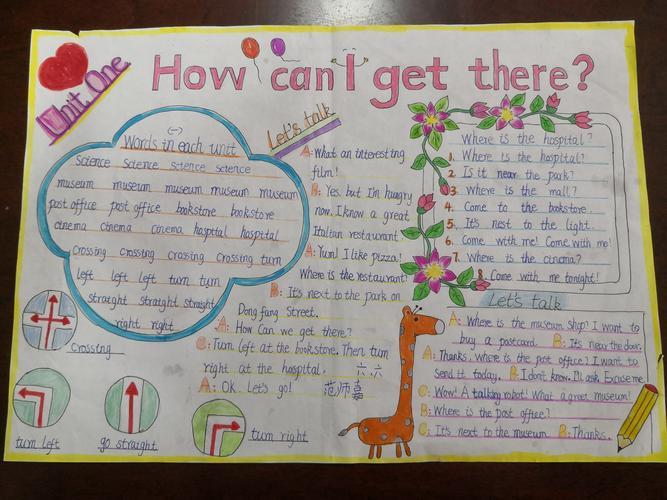 Unit One
How can I get there?
(一)
Words in each unit
Science science science science
museum museum museum museum museum
post office post office bookstore bookstore
cinema cinema cinema hospital hospital
crossing crossing crossing crossing turn
left left left turn turn
straight straight straight
right right
crossing
turn left
go straight
turn right
Let's talk
A: What an interesting
film!
B: Yes, but I'm hungry
now. I know a great
Italian restaurant.
A: Yum! I like pizza!
Where is the restaurant?
B: It's next to the park on
Dong fang Street.
A: How can we get there?
C: Turn left at the bookstore. Then turn
right at the hospital.
A: Ok. Let's go!
六.六
范师嘉
Where is the hospital?
1. Where is the hospital?
2. Is it near the park?
3 Where is the mall?
4. Come to the bookstore.
5. It's next to the light.
6. Come with me! Come with me!
7. Where is the cinema?
8. Come with me tonight!
Let's talk
A: Where is the museum shop? I want to
buy a postcard. B: It's near the door.
A: Thanks. Where is the post office? I want to
send it today. B: I don't know. I'll ask. Excuse me.
C: Wow! A talking robot! What a great museum!
B: Where is the post office?
C: It's next to the museum. B: Thanks.